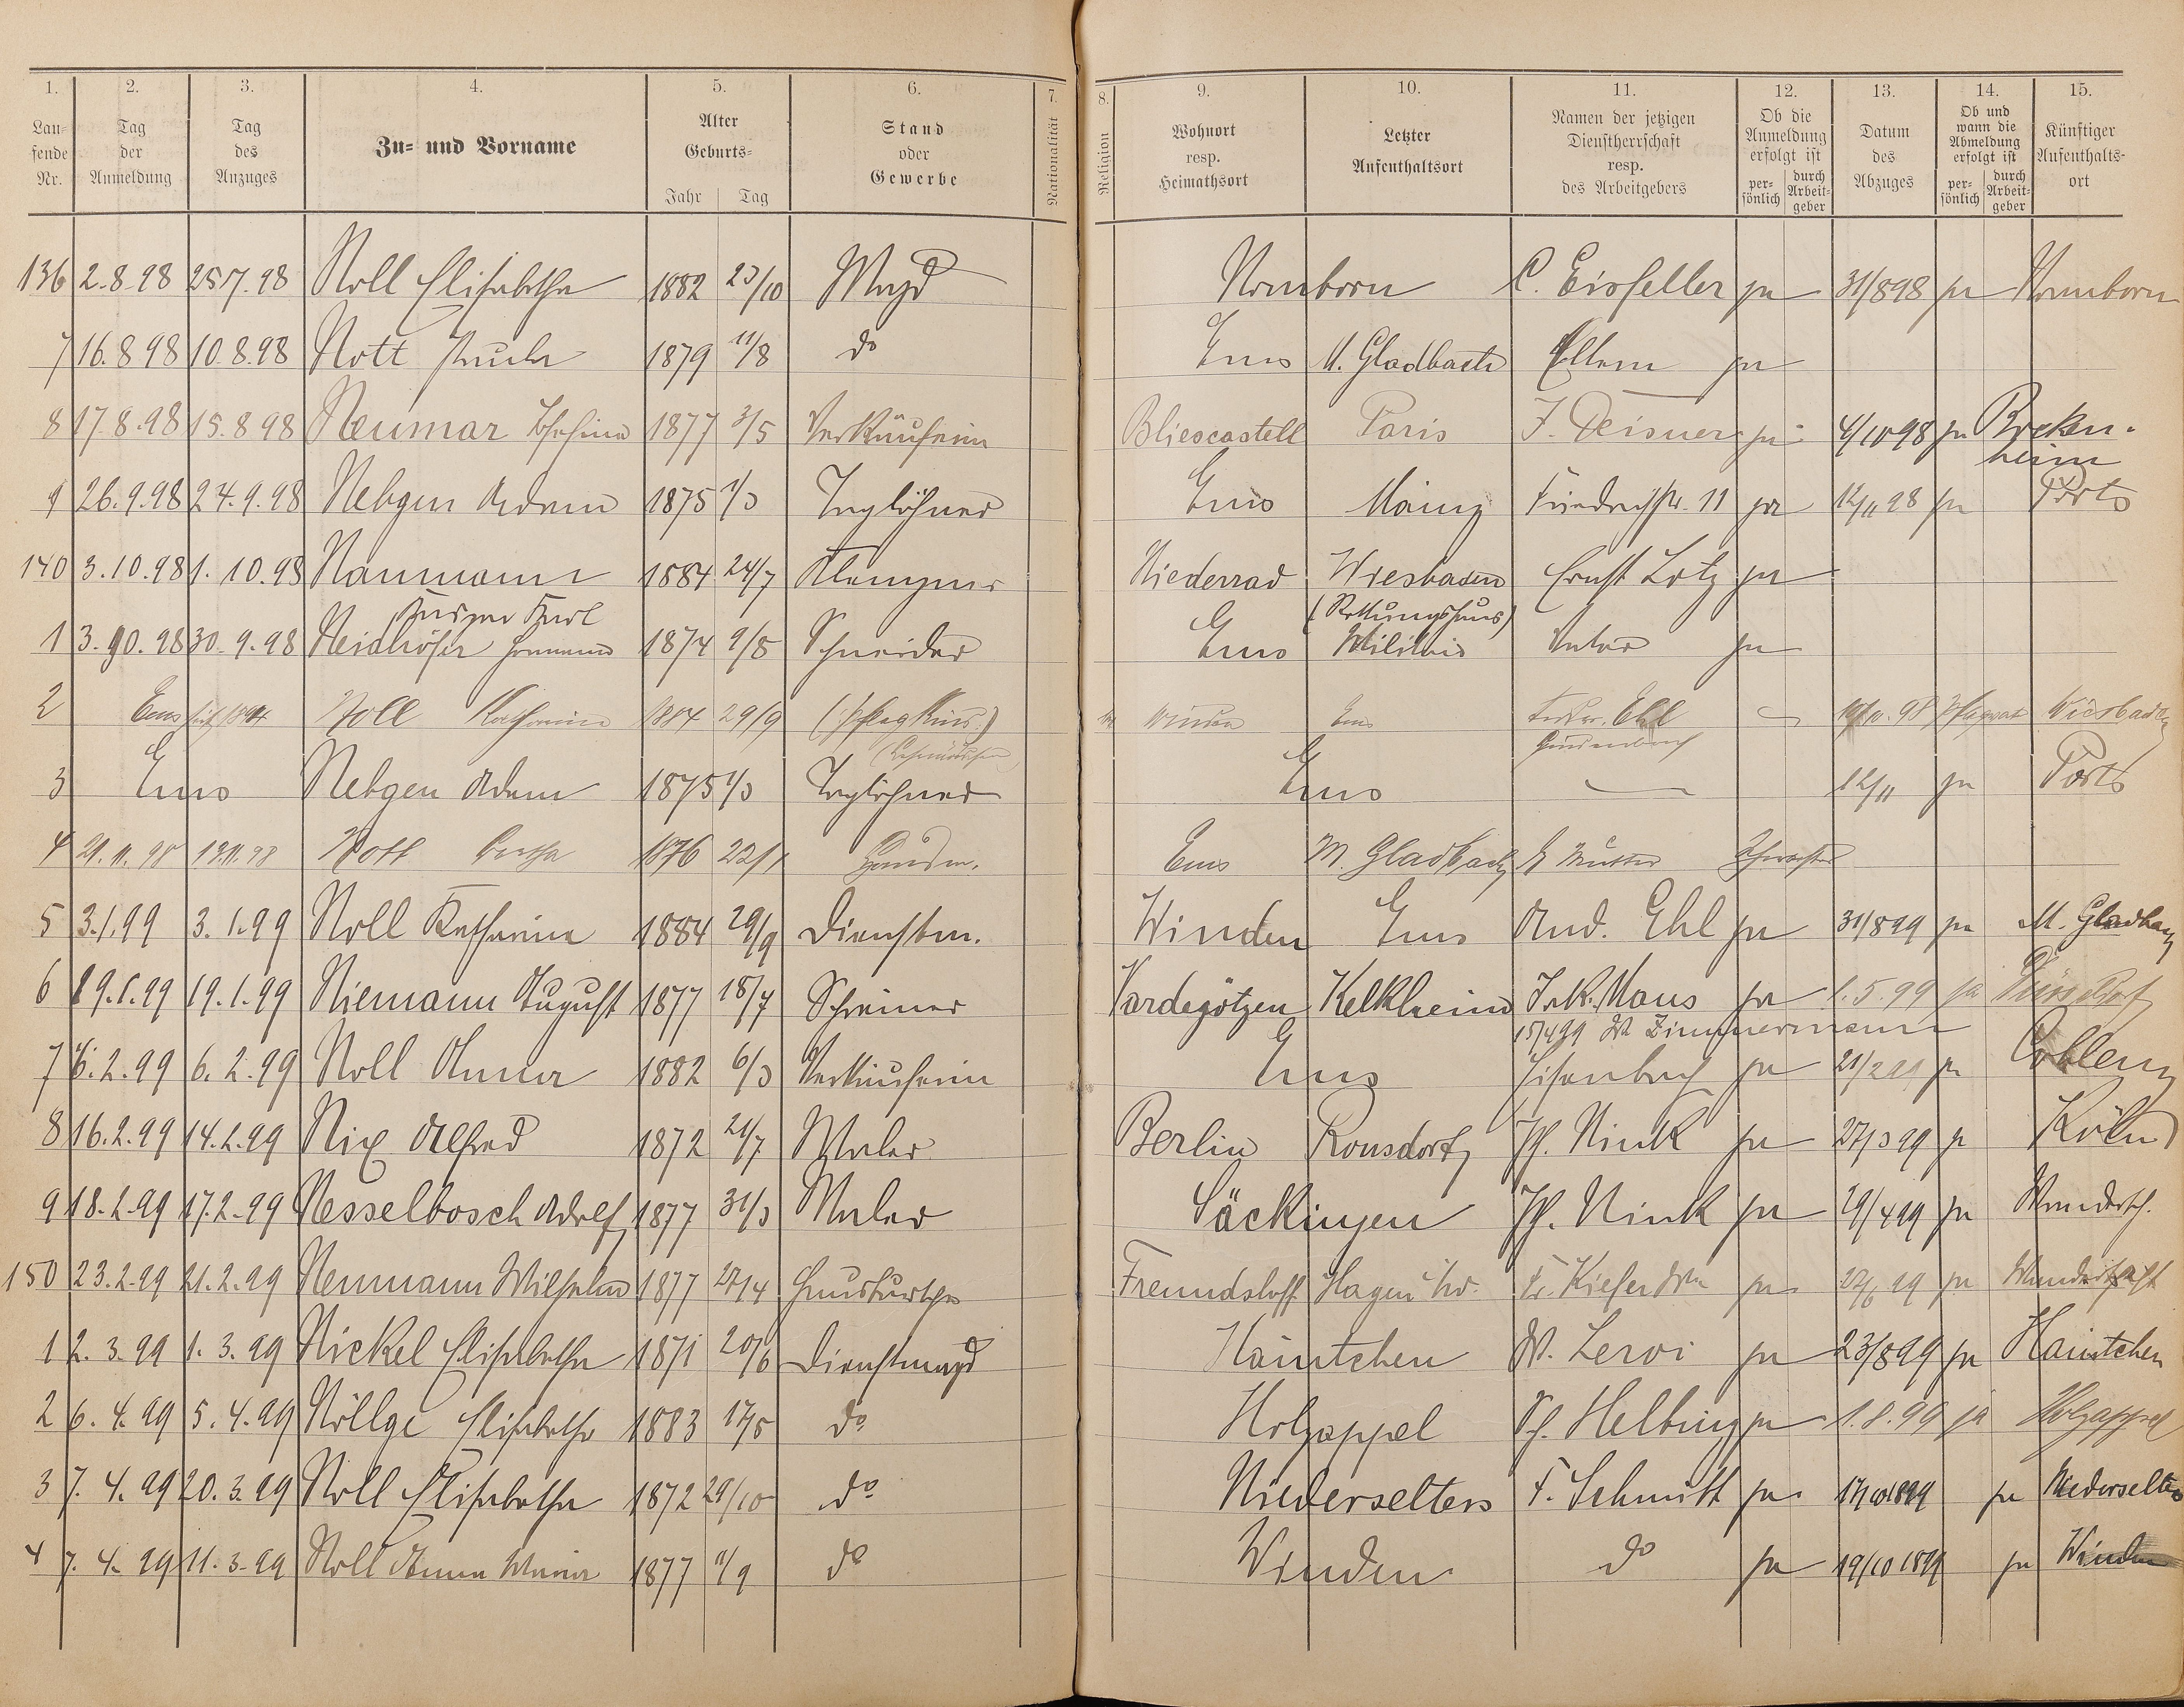 1. 2. 3. 4. 5. 6. 7. 8. 9. 10. 11. 12. 13. 14. 15.
Laufende Nr. Tag der Anmeldung Tag des Anzuges Zu- und Vorname Alter Geburts- Jahr Tag Stand oder Gewerbe Nationalität Religion Wohnort resp. Heimathsort Letzter Aufenthaltsort Namen der jetzigen Dienstherrschaft resp. des Arbeitgebers Ob die Anmeldung erfolgt ist persönlich durch Arbeitgeber Datum des Abzuges Ob und wann die Abmeldung erfolgt ist persönlich durch Arbeitgeber Künftiger Aufenthaltsort
136 2.8.98 25/7.98 Noll Elisabetha 1882 23/10 Magd Nomborn C. Eisfeller ja 31/8 98 ja Nomborn
7 16.8.98 10.8.98 Nott Paula 1879 11/8 do Ems M. Gladbach Eltern ja
8 17.8.98 15.8.98 Neumar 1877 3/5 Verkäuferin Bliescastell Paris J. Deisner ja 4/10 98 ja Bockenheim
9 26.9.98 24.9.98 Nebgen Adam 1875 1/3 Taglöhner Ems Mainz Friedrichstr. 11 ja 12/11 98 ja Ports
140 3.10.98 1.10.98 Naumann 1884 24/7 Klempner Niederrad Wiesbaden Ernst Lotz ja
Karl (Rettungshaus)
1 3.10.98 30.9.98 Neidhöfer Hermann 1874 9/8 Schneider Ems Militair Vater ja
2 Ems Noll Katharina 1884 29/9 (Pflegkind) Winden Ems Ehl 98 Wiesbaden
3 Ems Nebgen Adam 1875 1/3 Taglöhner Ems — 12/11 ja Ports
4 21.11.98 19.11.98 Nott Bertha 1876 22/1 Ems M. Gladbach Mutter
5 3.1.99 3.1.99 Noll Katharina 1884 29/9 Dienstm. Winden Ems And. Ehl ja 31/8 99 ja M. Gladbach
6 19.1.99 19.1.99 Niemann August 1877 18/7 Schreiner Vardegötzen Kelkheim Jak. Maus ja 1.5.99 ja Düsseldorf
15/4 99 W. Zimmermann
7 6.2.99 6.2.99 Noll Anna 1882 6/3 Verkäuferin Ems Eisenbach ja 21/2 99 ja Coblenz
8 16.2.99 14.2.99 Nix Alfred 1872 21/7 Maler Berlin Ronsdorf Jh. Nink ja 27/3 99 ja Köln
9 18.2.99 17.2.99 Nesselbosch Adolf 1877 31/3 Maler Säckingen Jh. Nink ja 29/4 99 ja Wandersch.
150 23.2.99 21.2.99 Neumann Wilhelm 1877 27/4 Hausbursche Hagen Kiefer ja 27/6 99 ja Wanderschaft
1 2.3.99 1.3.99 Nickel Elisabetha 1871 20/6 Dienstmagd Haintchen W. Leroi ja 23/8 99 ja Haintchen
2 6.4.99 5.4.99 Nöllge Elisabetha 1883 17/5 do Holzappel Ph. Helbing ja 1.8.99 ja Holzappel
3 7.4.99 20.3.99 Noll Elisabetha 1872 29/10 do Niederselters F. Schmitt ja 17/10 1899 ja Niederselters
4 7.4.99 11.3.99 Noll Anna Maria 1877 11/9 do Winden do ja 19/10 1899 ja Winden